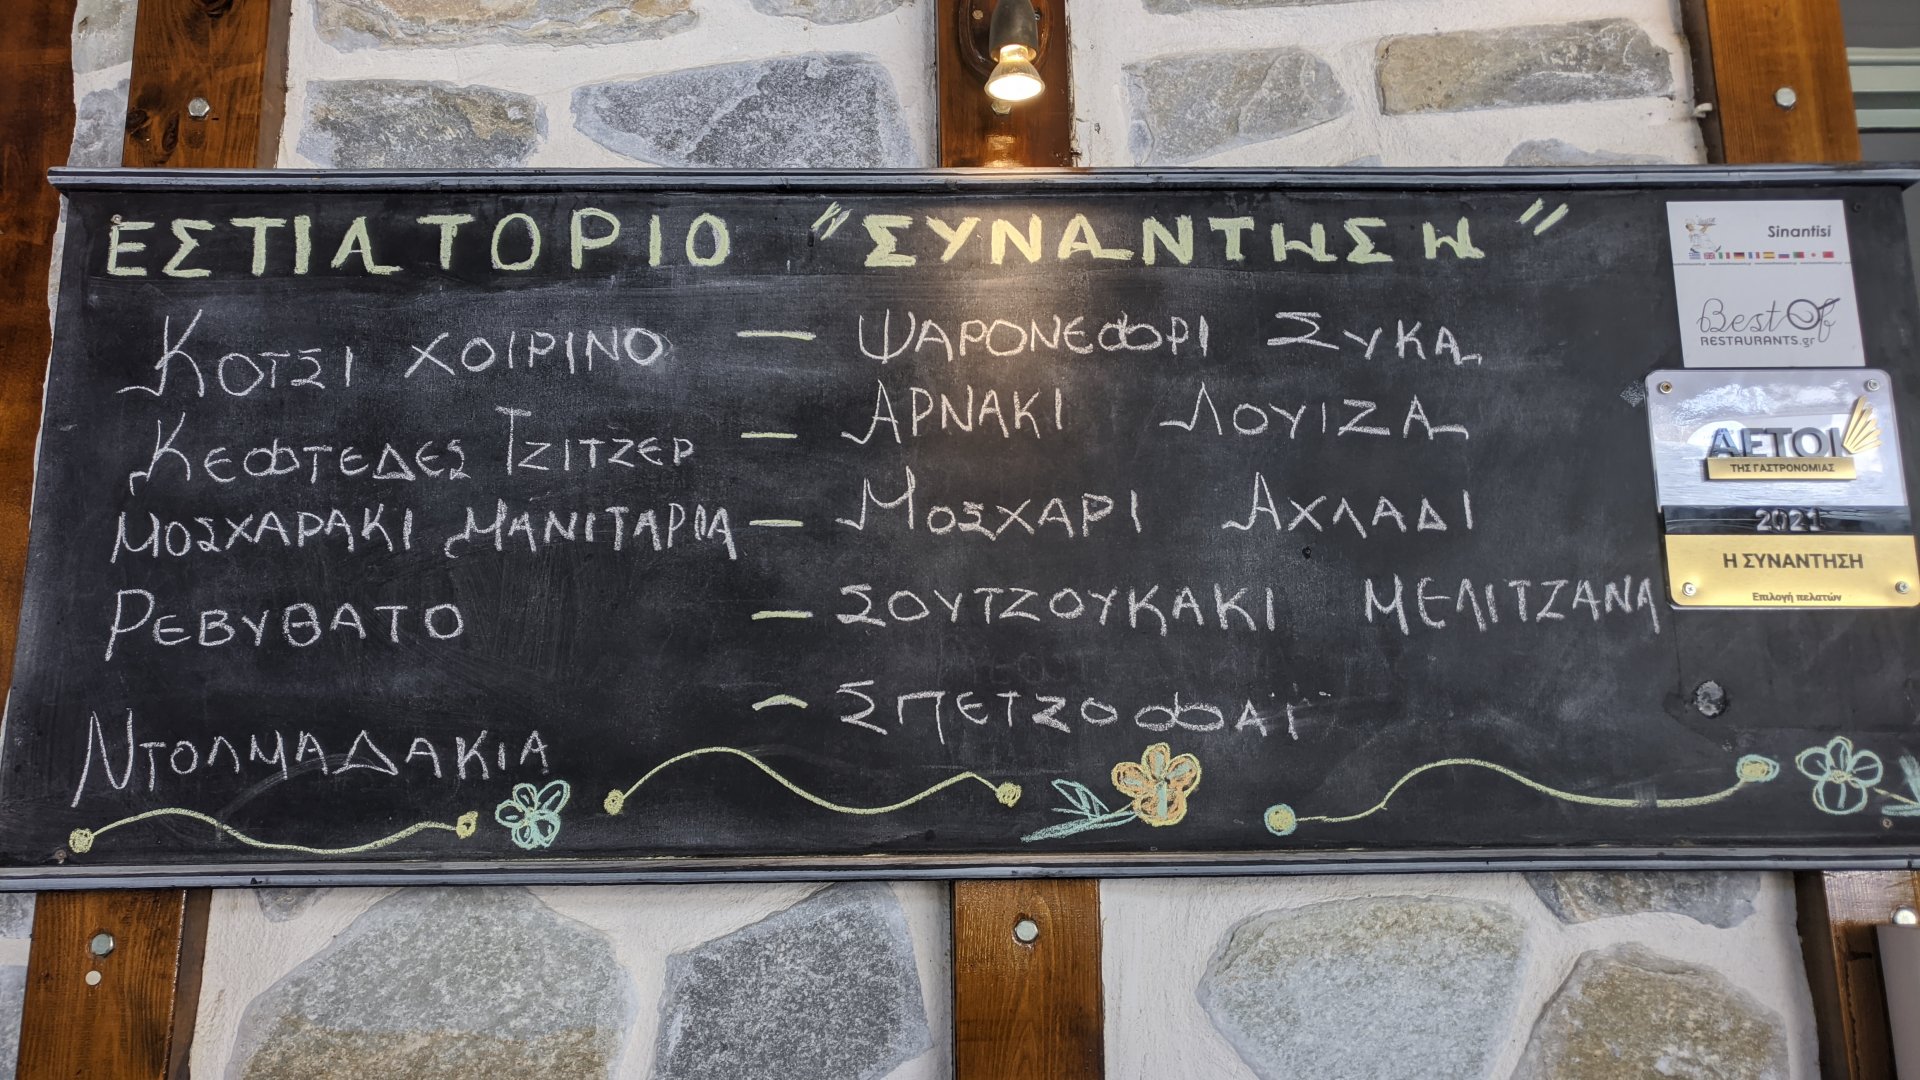 ΕΣΤΙΑΤΟΡΙΟ "ΣΥΝΑΝΤΗΣΗ"
ΚΟΤΣΙ ΧΟΙΡΙΝΟ — ΨΑΡΟΝΕΦΡΙ ΣΥΚΑ
ΚΕΦΤΕΔΕΣ ΤΖΙΤΖΕΡ — ΑΡΝΑΚΙ ΛΟΥΙΖΑ
ΜΟΣΧΑΡΑΚΙ ΜΑΝΙΤΑΡΙΑ — ΜΟΣΧΑΡΙ ΑΧΛΑΔΙ
ΡΕΒΥΘΑΤΟ — ΣΟΥΤΖΟΥΚΑΚΙ ΜΕΛΙΤΖΑΝΑ
ΝΤΟΛΜΑΔΑΚΙΑ — ΣΠΕΤΖΟΦΑΪ
Sinantisi
Best Of
RESTAURANTS.gr
ΑΕΤΟΙ
ΤΗΣ ΓΑΣΤΡΟΝΟΜΙΑΣ
2021
Η ΣΥΝΑΝΤΗΣΗ
Επιλογή πελατών